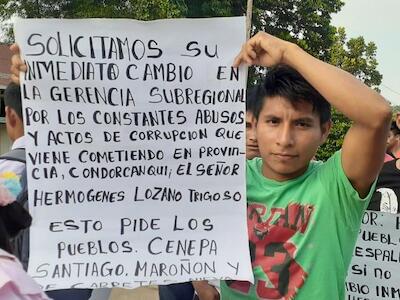 SOLICITAMOS SU
INMEDIATO CAMBIO EN
LA GERENCIA SUBREGIONAL
POR LOS CONSTANTES ABUSOS
Y ACTOS DE CORRUPCION QUE
VIENE COMETIENDO EN PROVIN-
CIA, CONDORCANQUI; EL SEÑOR
HERMOGENES LOZANO TRIGOSO
ESTO PIDE LOS
PUEBLOS. CENEPA
SANTIAGO, MAROÑON Y
DE CARRETERA
POR
PUEBL
ESPAL
SI NO
INM